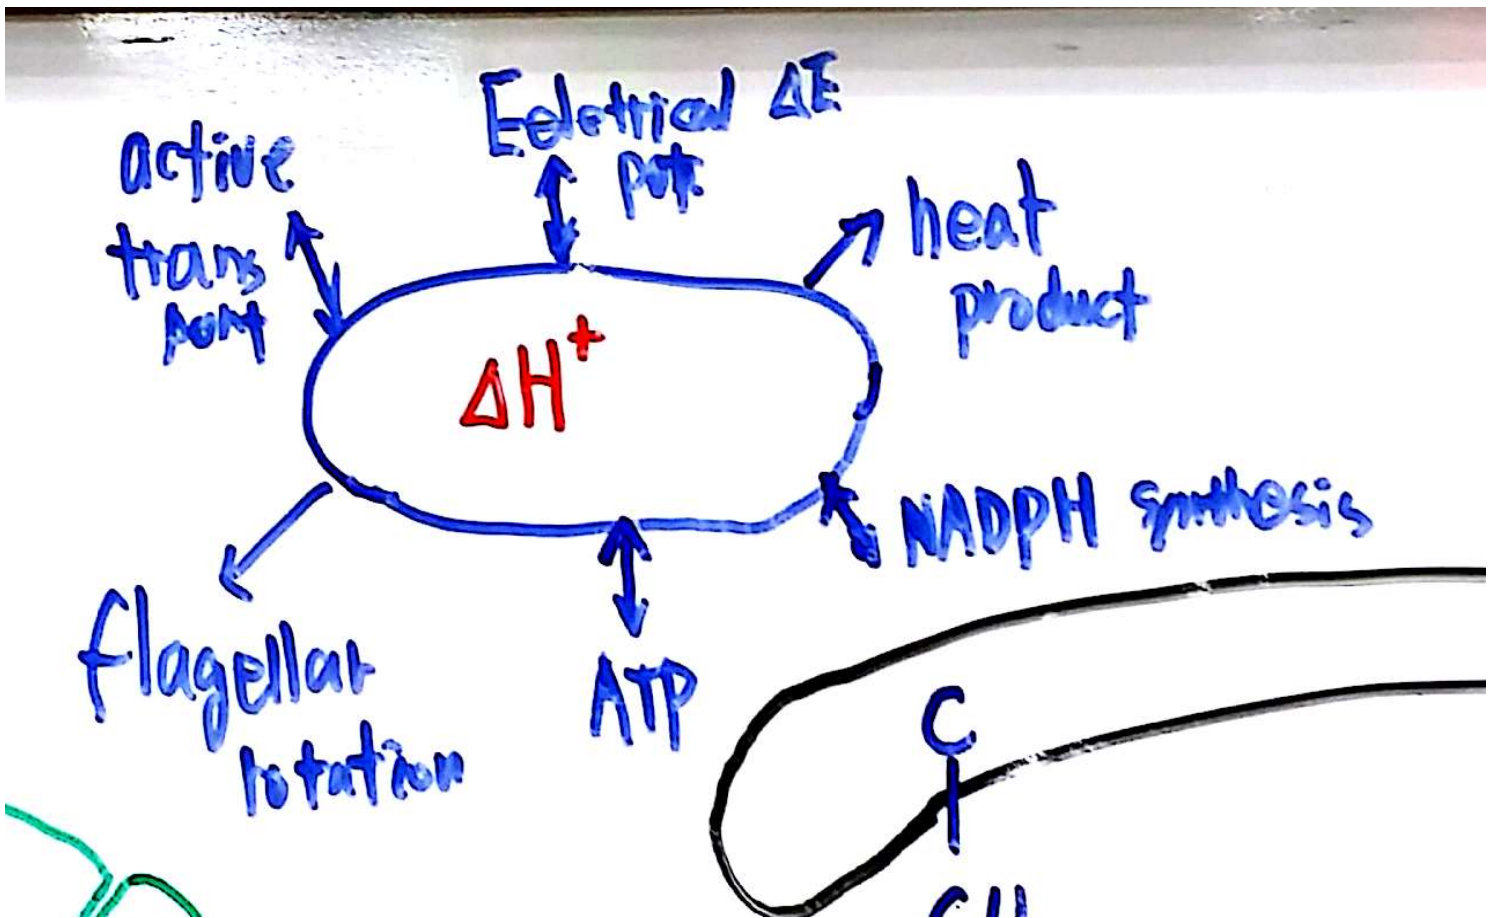 active
trans
port
Eeletrical ΔE
pot.
heat
product
ΔH⁺
NADPH synthesis
flagellar
rotation
ATP
C
CH